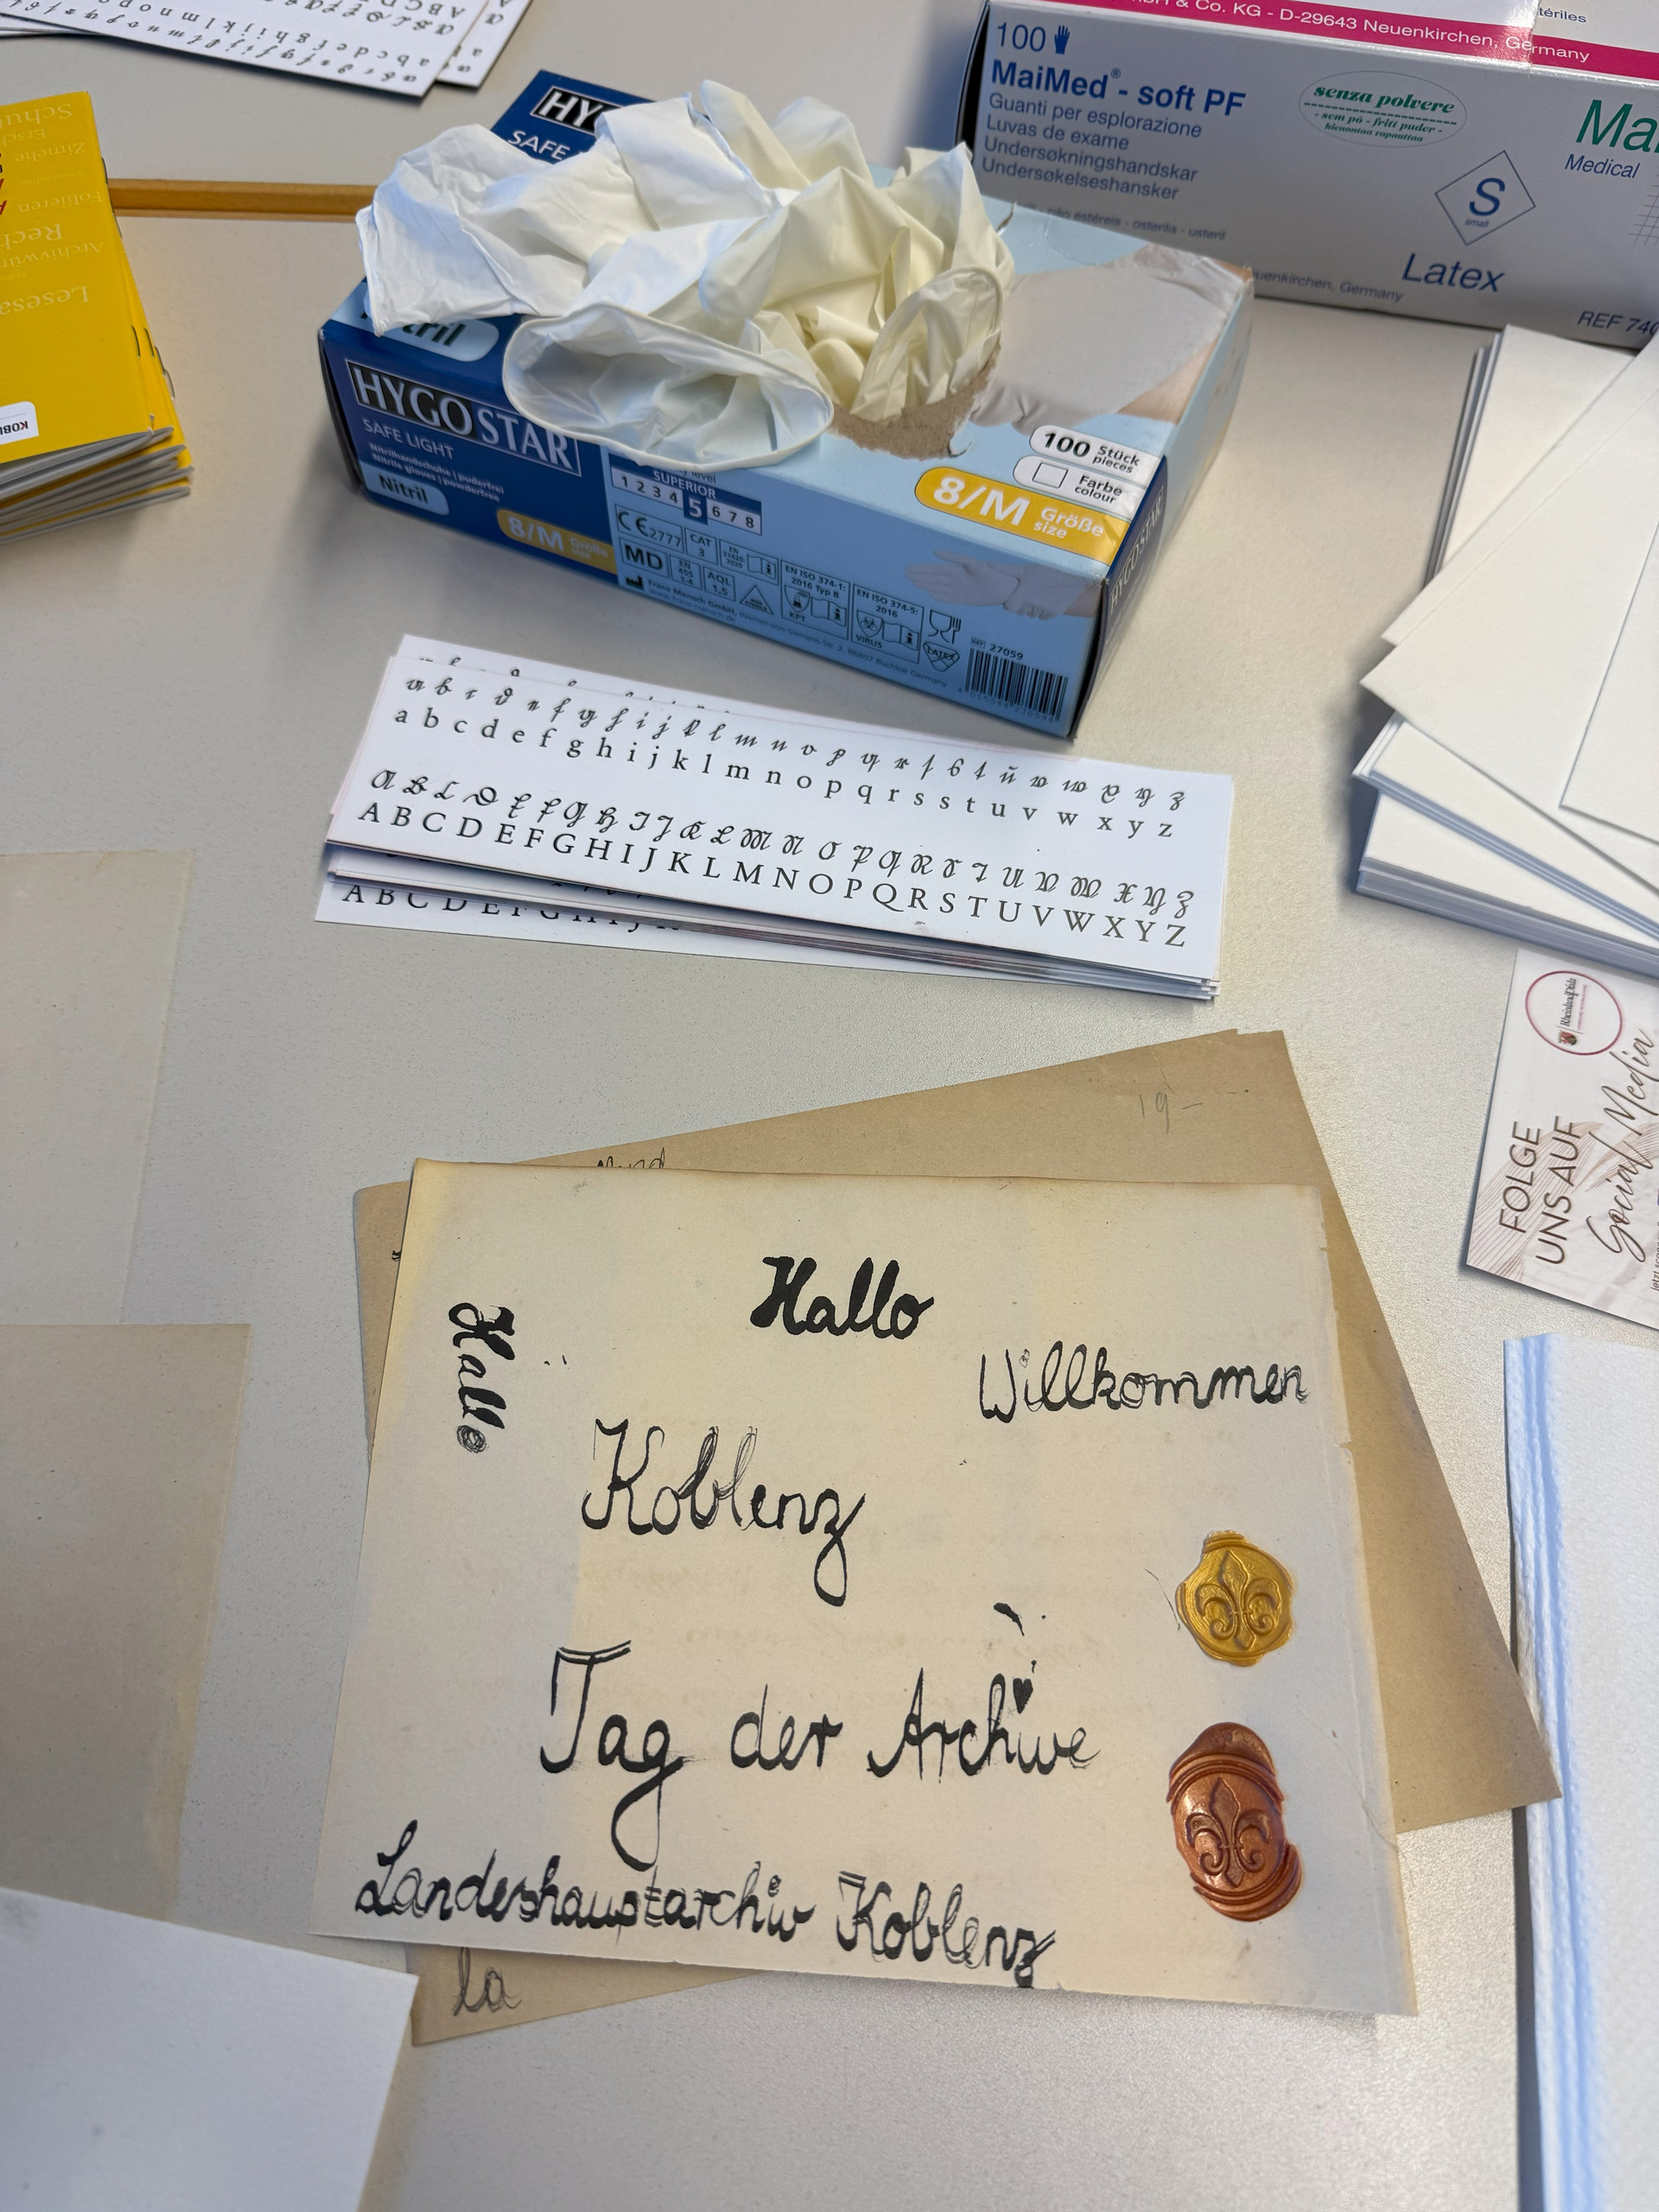 GmbH & Co. KG - D-29643 Neuenkirchen, Germany
100
MaiMed® - soft PF
Guanti per esplorazione
Luvas de exame
Undersøkningshandskar
Undersøkelseshansker
senza polvere
Medical
S
small
Latex
uenkirchen, Germany
REF 740
SAFE
HYGOSTAR
SAFE LIGHT
Nitrilhandschuhe | puderfrei
Nitrile gloves | powderfree
Nitril
8/M Größe
size
SUPERIOR
1 2 3 4 5 6 7 8
CE 2777
CAT 3
MD
AQL 1,5
EN ISO 374-1: 2016 Typ B
KPT
EN ISO 374-5: 2016
VIRUS
LATEX
100 Stück
pieces
Farbe
colour
8/M Größe
size
HYGOSTAR
27059
Lesesa
a b c d e f g h i j k l m n o p q r s s t u v w x y z
a b c d e f g h i j k l m n o p q r s s t u v w x y z
A B C D E F G H I J K L M N O P Q R S T U V W X Y Z
A B C D E F G H I J K L M N O P Q R S T U V W X Y Z
A B C D E F G H I J K
FOLGE
UNS AUF
Social Media
RheinlandPfalz
19-
Hallo
Hallo
Willkommen
Koblenz
Tag der Archive
Landeshauptarchiv Koblenz
la